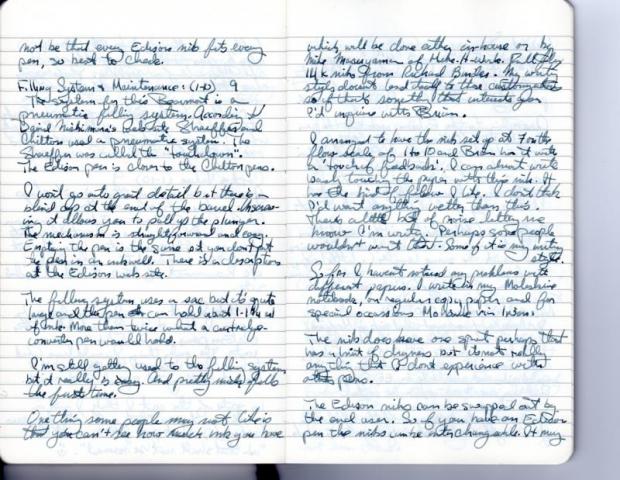 not be that every Edison nib fits every
pen, so best to check.
Filling System & Maintenance: (1-10) 9
The system for this Beaumont is a
pneumatic fillin system. Accordin to
Sheaffer and
Chilton used a pneumatic system. The
Sheaffer was called the "touchdown".
The Edison pen is closer to the Chilton pens.
I won't go into great detail but there is a
blind cap at the end of the barrel. Unscrew-
ing it allows you to pull up the plunger.
The mechanism is straightforward and easy.
Emptying the pen is the same as you don't put
the pen in an inkwell. There is a description
at the Edison web site.
The filling system uses a sac but it's quite
large and the pen can hold about
of ink. More than twice what a cartridge-
converter pen would hold.
I'm still getting used to the fillin system
but it really is easy. And pretty much fills
the first time.
One thing some people may not like is
that you can't see how much ink you have
which will be done either in house or by
Mike Masuyama of Mike-It-Work. Pull
14k nibs from Richard Binder. My writing
style doesn't lend itself to those
so if that's something that interests you
I'd inquire with Brian.
I arranged to have the nib set up at 7 on the
flow scale of 1 to 10 and Brian
a 'touch of feedback'. I can almost write
touch the paper with this nib. It
has the kind of I like. I don't think
I'd want anythin' wetter than this.
There's a little bit of noise letting me
know I'm writing. Perhaps some people
wouldn't want that. Some of it is my writing
style.
So far I haven't noticed any problems with
different papers. I write in my Moleskine
notebook, on regular copy paper and for
special occassions
The nib does have one spot perhaps that
has a hint of dryness but it's not really
anythin that I don't experience with
pens.
The Edison nibs can be swapped out by
the end user. So if you have an Edison
pen the nibs will be interchangeable. It may